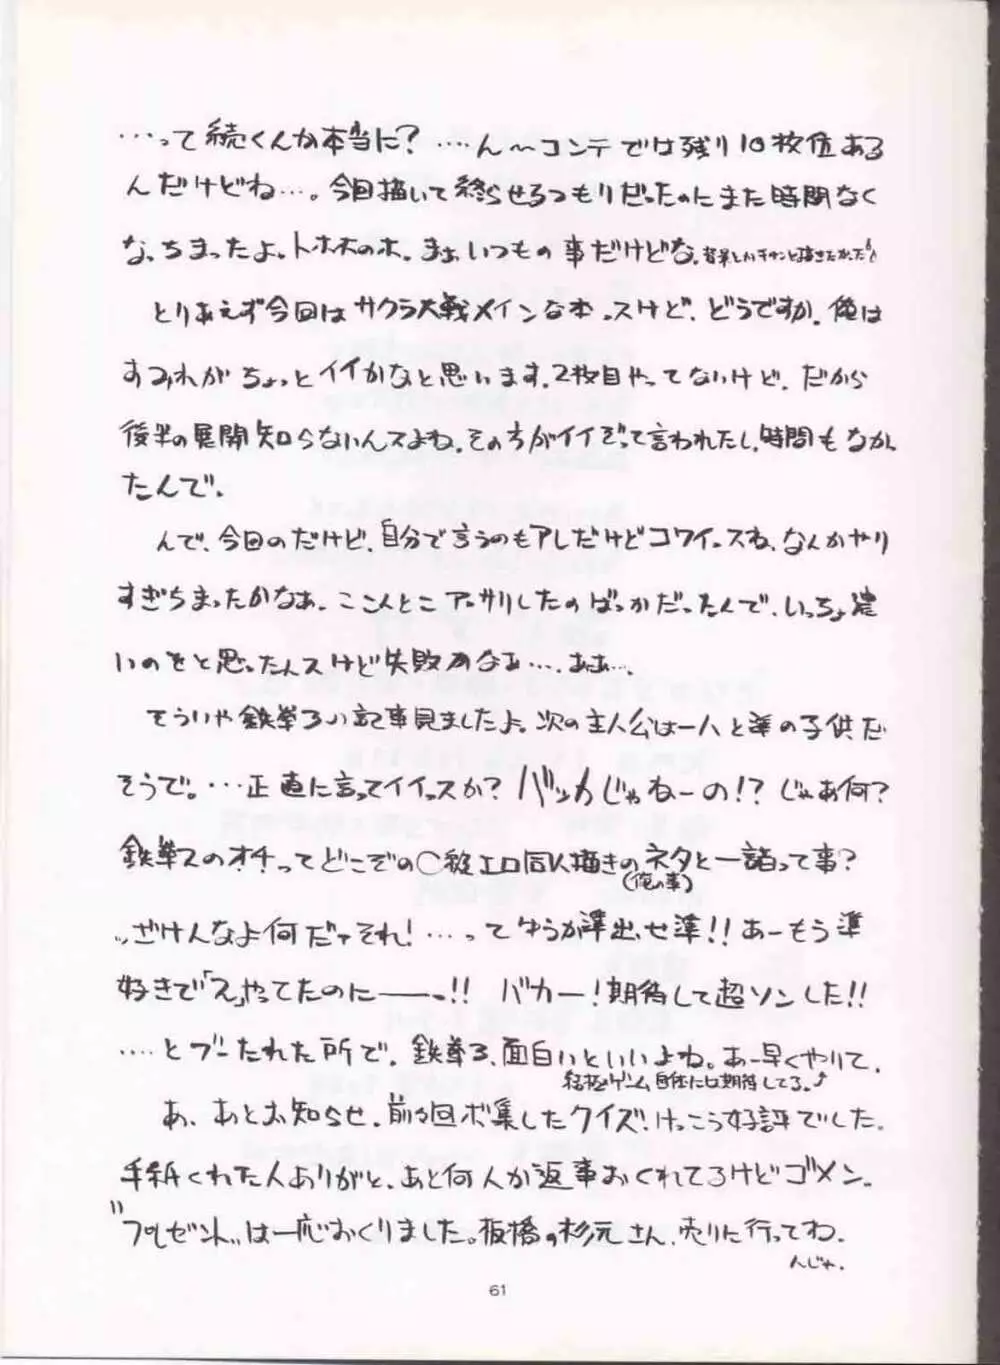 …って続くんか本当に?…‥ん〜コンテでは残り10枚位ある
んだけどね…。今回描いて終らせるつもりだったのにまた時間なく
なっちまったよ。トホホのホ。まぁ、いつもの事だけどな。背景とかキチンと描きたかった!
とりあえず今回はサクラ大戦メインな本っスけど、どうですか。俺は
すみれがちょっとイイかなと思います。2枚目やってないけど、だから
後半の展開知らないんスよね。その方がイイぞって言われたし、時間もなかっ
たんで。
んで、今回のだけど、自分で言うのもアレだけどコワイっスね、なんかやり
すぎちまったかなぁ。ここんとこアッサリしたのばっかだったんで、いっちょ濃
いのをと思ったんスけど失敗かなぁ…。ああ…
そういや鉄拳3の記事見ましたよ。次の主人公は一八と準の子供だ
そうで。…正直に言ってイイっスか?バッカじゃねーの!?じゃあ何?
鉄拳2のオチってどこぞの〇種エロ同人描きのネタと一諸って事?
(俺の事)
ざけんなよ何だァそれ!…って ゆうか準出せ準!!あーもう準
好きで「2」やってたのにーーっ!!バカー!期待して超ソンした!!
‥‥とブーたれた所で、鉄拳3、面白いといいよね。あー早くやりて。
結極ゲーム自体には期待してる。
あ、あとお知らせ、前々回ボ集したクイズ、けっこう好評でした。
手紙くれた人ありがと、あと何人か返事おくれてるけどゴメン。
"プレゼント"は一応おくりました。板橋の杉元さん、売りに行ってね。
んじゃ。
61